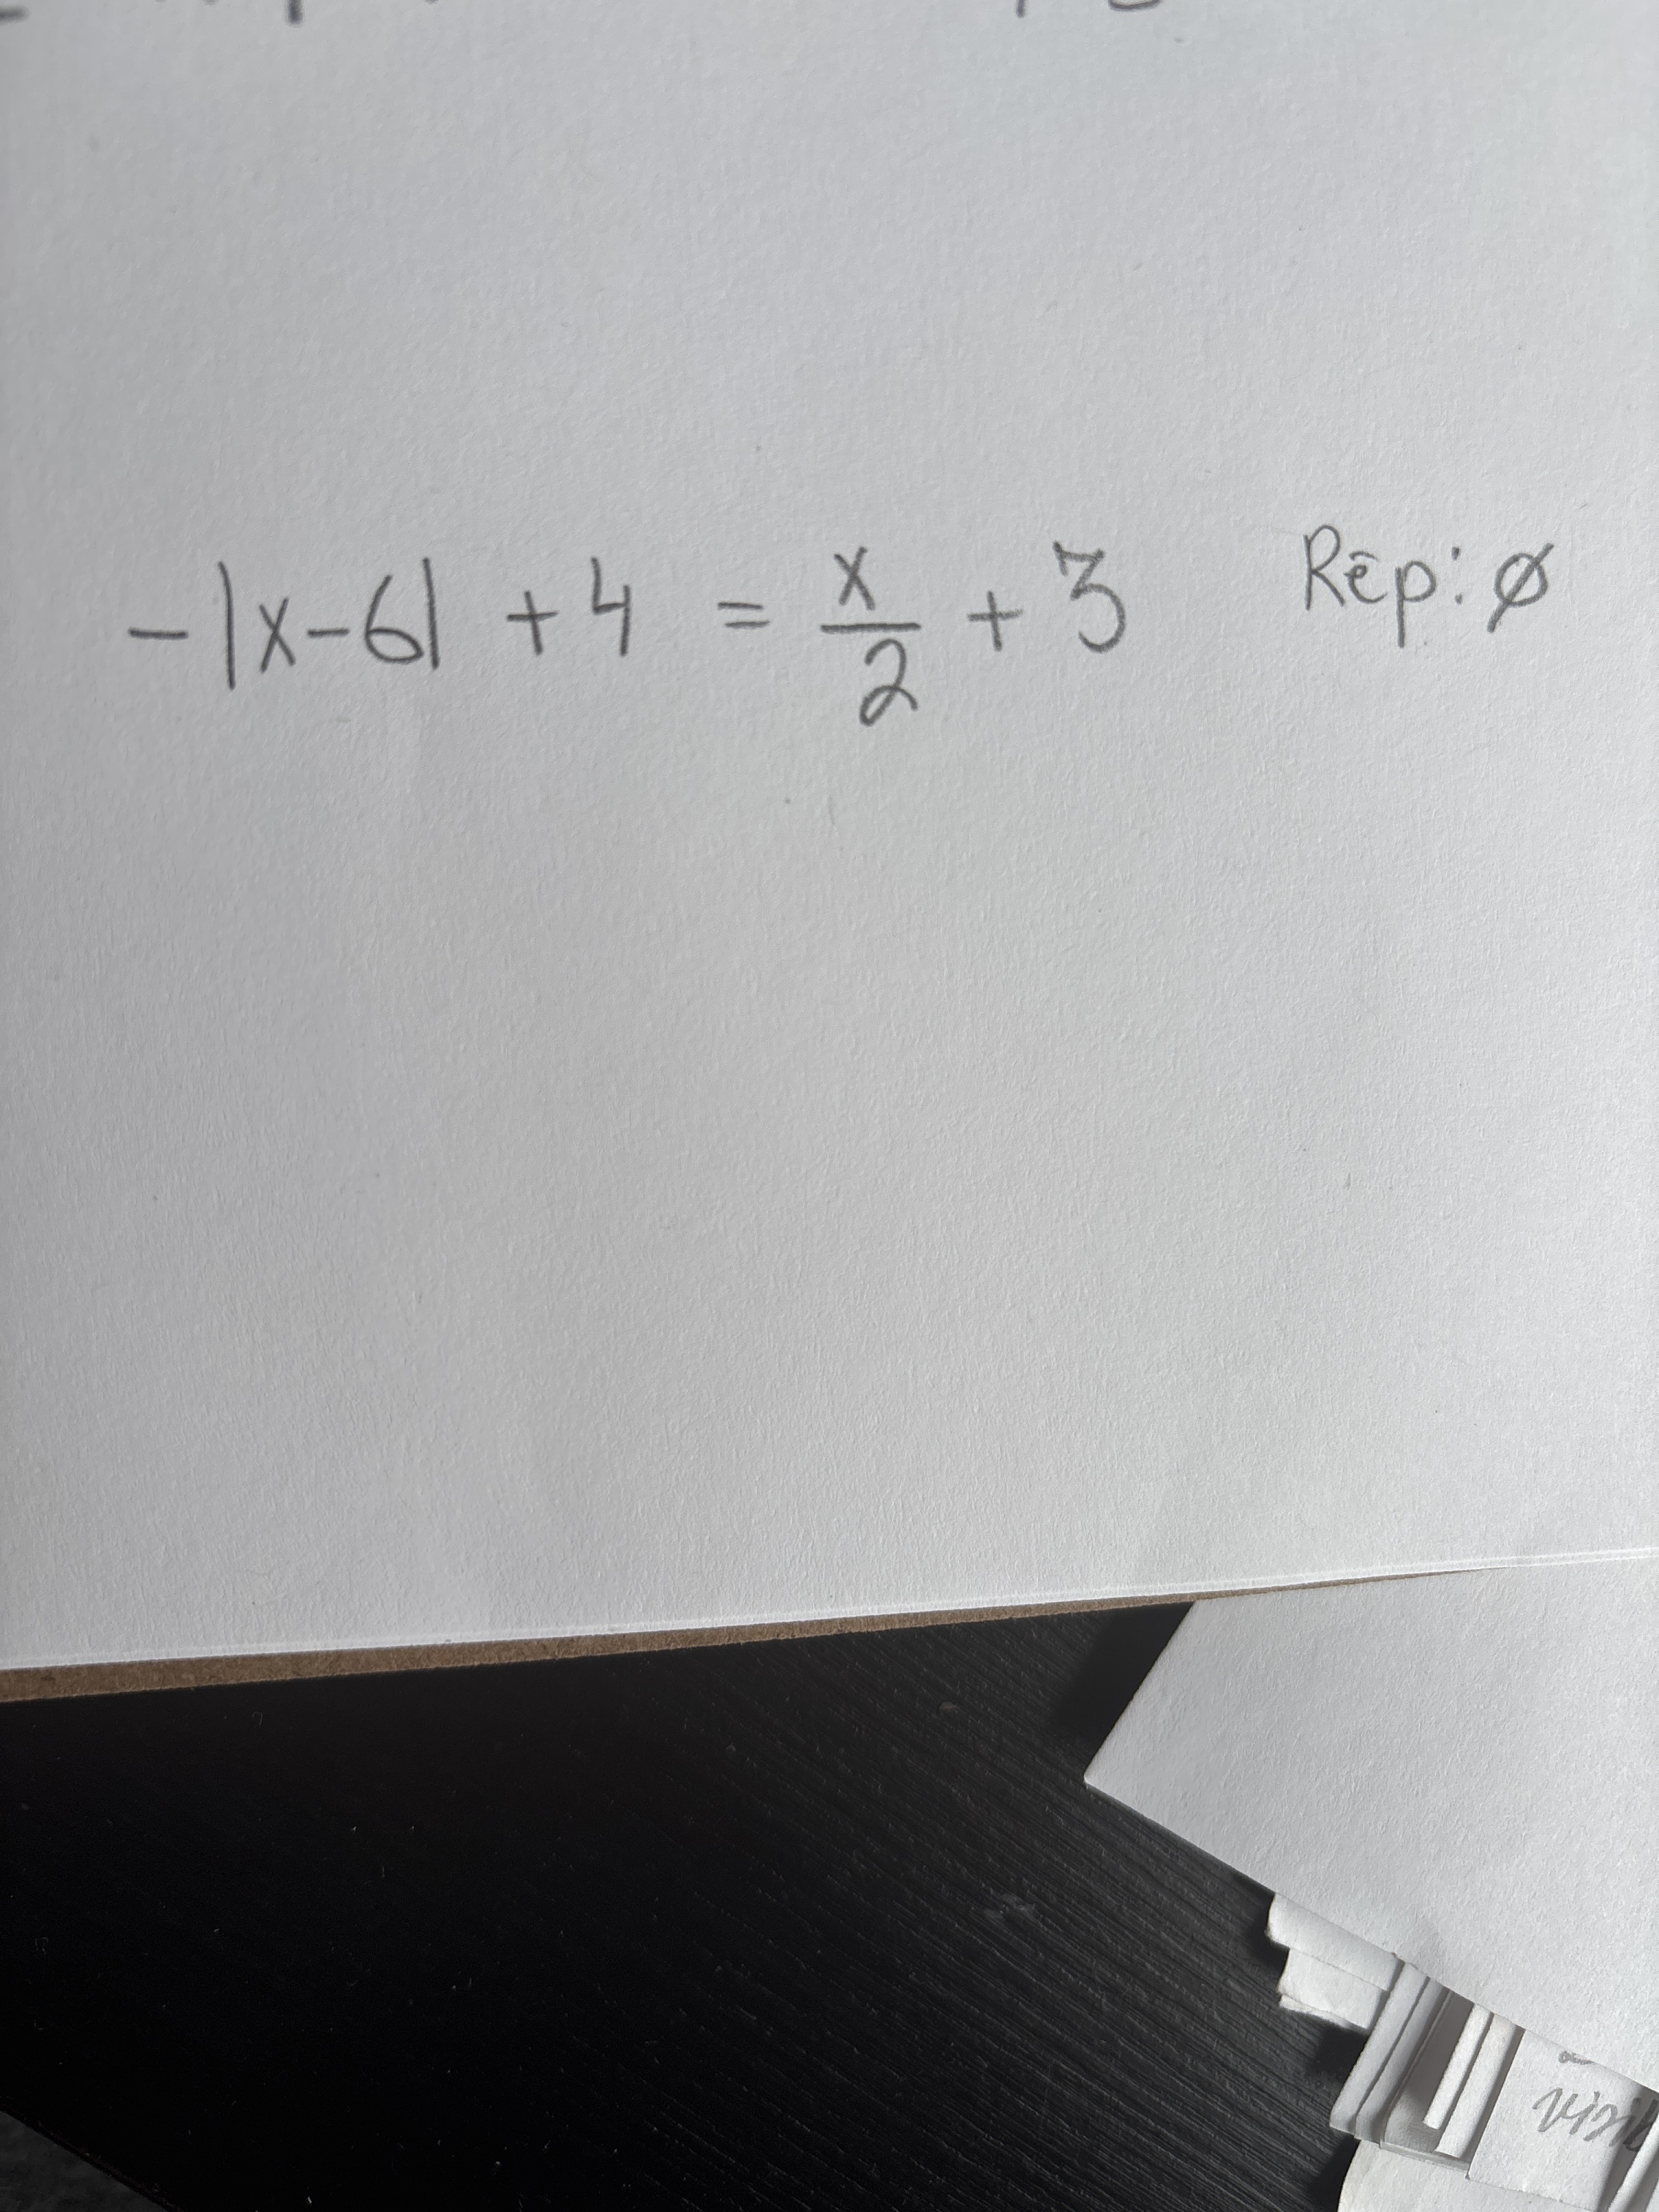 -|x-6| +4 = x/2 + 3 Rép: ∅